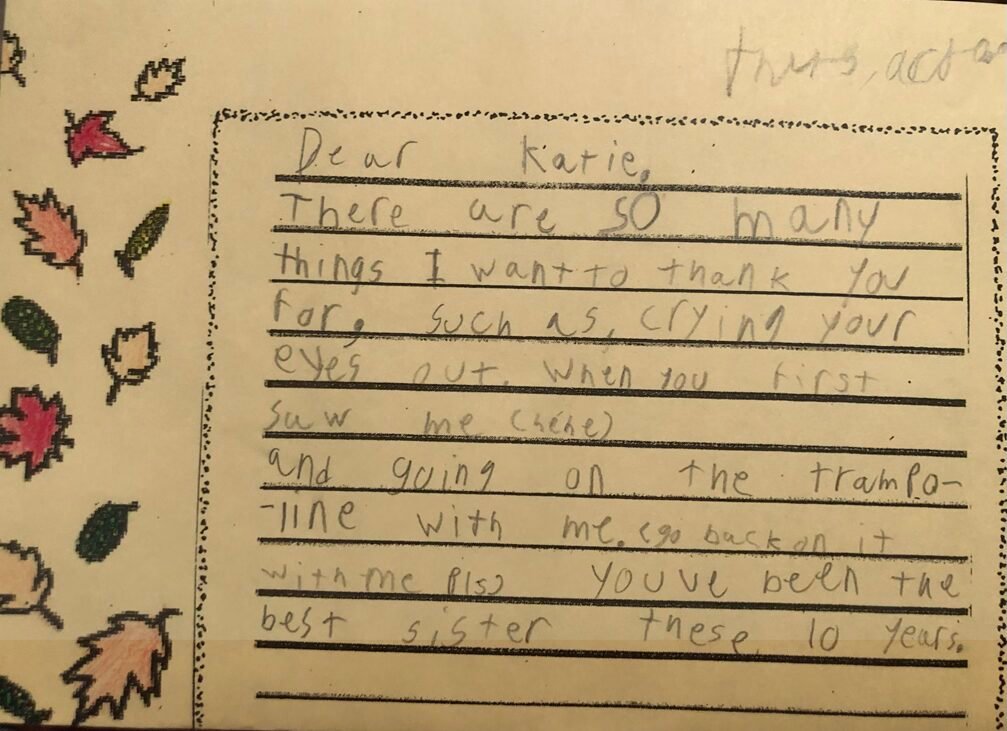 Dear Katie,
There are SO many
things I want to thank you
for, such as, crying your
eyes out, when you first
saw me (hehe)
and going on the trampo-
-line with me. (go back on it
with me pls) you've been the
best sister these 10 years.